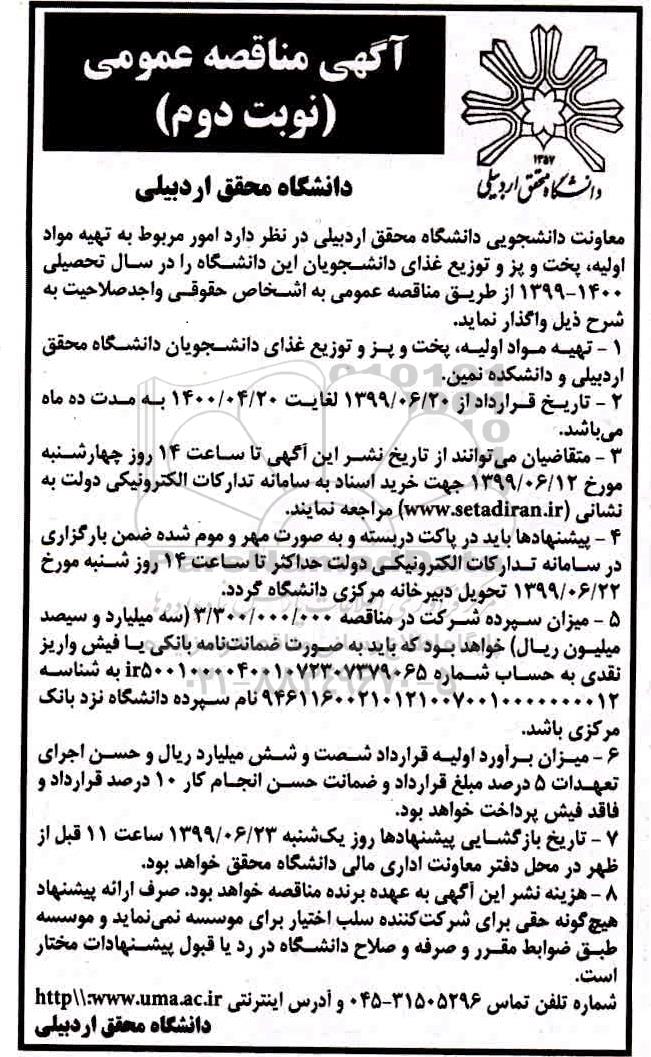 آگهی مناقصه عمومی
(نوبت دوم)
۱۳۵۷
دانشگاه محقق اردبیلی
دانشگاه محقق اردبیلی
معاونت دانشجویی دانشگاه محقق اردبیلی در نظر دارد امور مربوط به تهیه مواد
اولیه، پخت و پز و توزیع غذای دانشجویان این دانشگاه را در سال تحصیلی
۱۴۰۰-۱۳۹۹ از طریق مناقصه عمومی به اشخاص حقوقی واجدصلاحیت به
شرح ذیل واگذار نماید.
۱ - تهیه مواد اولیه، پخت و پز و توزیع غذای دانشجویان دانشگاه محقق
اردبیلی و دانشکده نمین.
۲ - تاریخ قرارداد از ۱۳۹۹/۰۶/۲۰ لغایت ۱۴۰۰/۰۴/۲۰ به مدت ده ماه
می‌باشد.
۳ - متقاضیان می‌توانند از تاریخ نشر این آگهی تا ساعت ۱۴ روز چهارشنبه
مورخ ۱۳۹۹/۰۶/۱۲ جهت خرید اسناد به سامانه تدارکات الکترونیکی دولت به
نشانی (www.setadiran.ir) مراجعه نمایند.
۴ - پیشنهادها باید در پاکت دربسته و به صورت مهر و موم شده ضمن بارگزاری
در سامانه تدارکات الکترونیکی دولت حداکثر تا ساعت ۱۴ روز شنبه مورخ
۱۳۹۹/۰۶/۲۲ تحویل دبیرخانه مرکزی دانشگاه گردد.
۵ - میزان سپرده شرکت در مناقصه ۳/۳۰۰/۰۰۰/۰۰۰ (سه میلیارد و سیصد
میلیون ریال) خواهد بود که باید به صورت ضمانت‌نامه بانکی یا فیش واریز
نقدی به حساب شماره ir۵۰۰۱۰۰۰۰۴۰۰۱۰۷۲۳۰۷۳۷۹۰۶۵ به شناسه
۹۴۶۱۱۶۰۰۲۱۰۱۲۱۰۰۷۰۰۱۰۰۰۰۰۰۰۰۰۱۲ نام سپرده دانشگاه نزد بانک
مرکزی باشد.
۶ - میزان برآورد اولیه قرارداد شصت و شش میلیارد ریال و حسن اجرای
تعهدات ۵ درصد مبلغ قرارداد و ضمانت حسن انجام کار ۱۰ درصد قرارداد و
فاقد فیش پرداخت خواهد بود.
۷ - تاریخ بازگشایی پیشنهادها روز یک‌شنبه ۱۳۹۹/۰۶/۲۳ ساعت ۱۱ قبل از
ظهر در محل دفتر معاونت اداری مالی دانشگاه محقق خواهد بود.
۸ - هزینه نشر این آگهی به عهده برنده مناقصه خواهد بود. صرف ارائه پیشنهاد
هیچ‌گونه حقی برای شرکت‌کننده سلب اختیار برای موسسه نمی‌نماید و موسسه
طبق ضوابط مقرر و صرفه و صلاح دانشگاه در رد یا قبول پیشنهادات مختار
است.
شماره تلفن تماس ۳۱۵۰۵۲۹۶-۰۴۵ و آدرس اینترنتی http\\:www.uma.ac.ir
دانشگاه محقق اردبیلی
۰۲۱-۸۸۳۴۹۶۷۰-۵